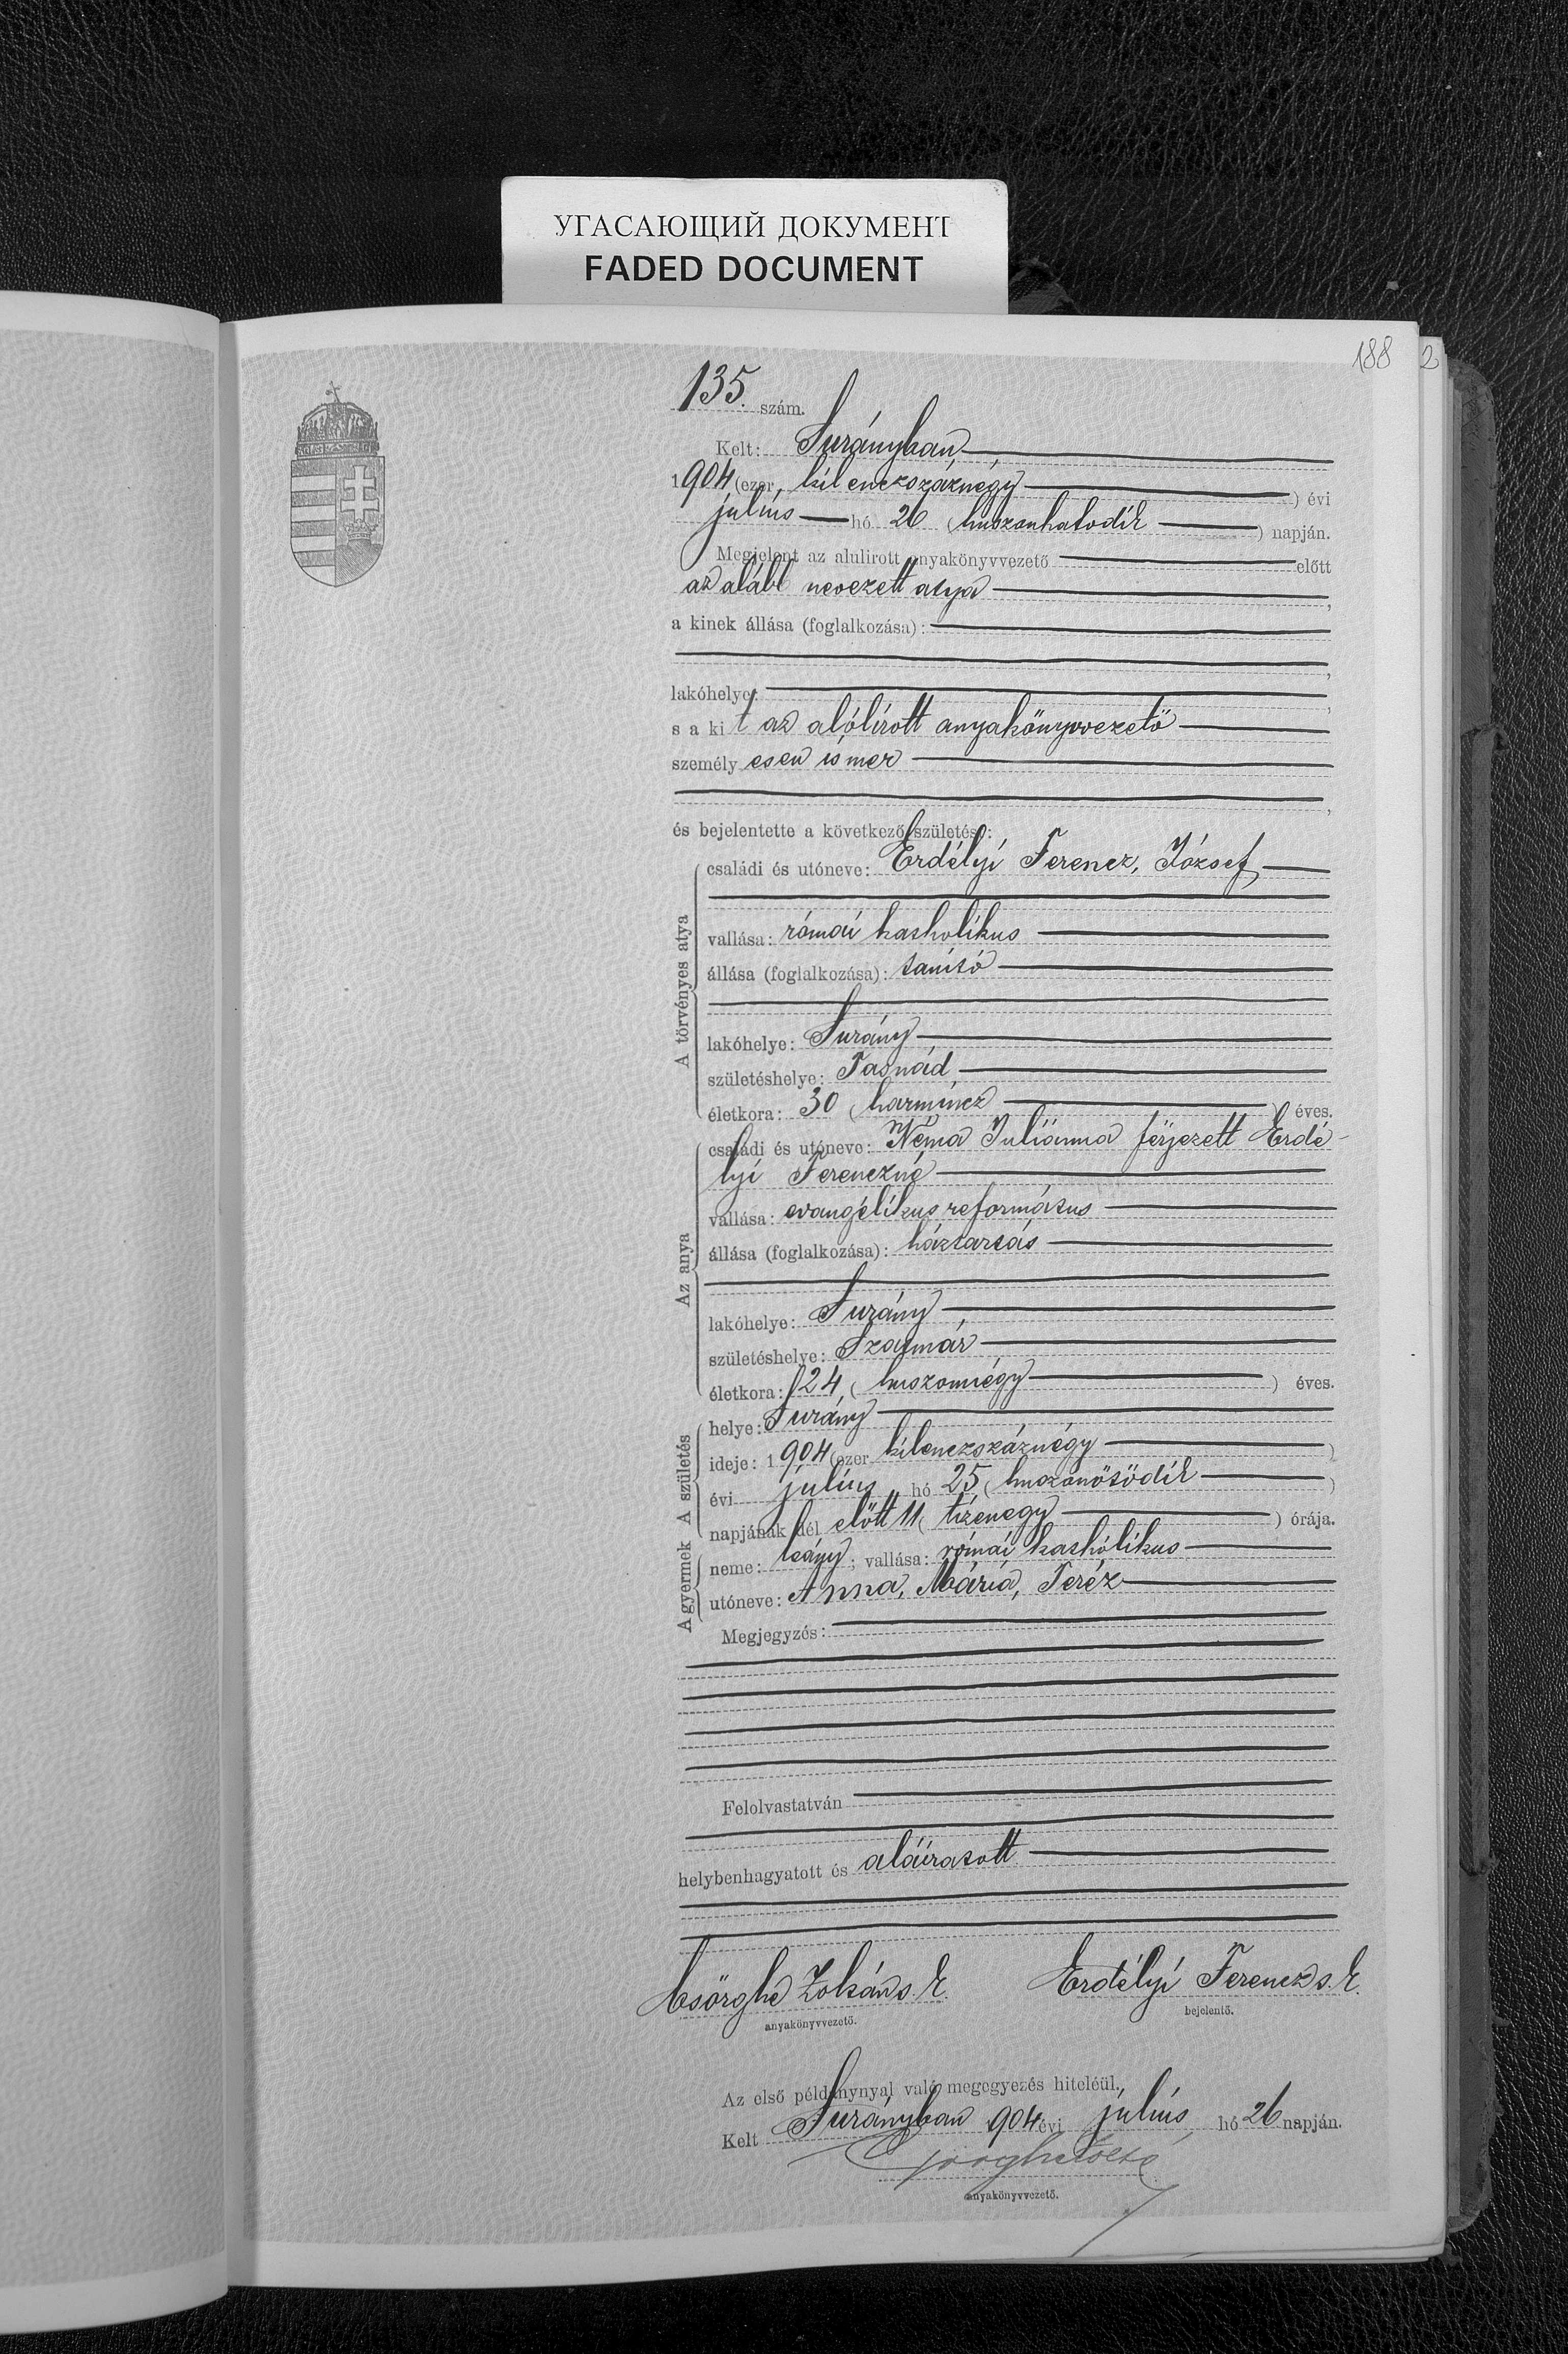 УГАСАЮЩИЙ ДОКУМЕНТ
FADED DOCUMENT
188 2
135. szám.
Kelt: Surányban
1904 (ezer kilenczszáznégy ) évi
július hó 26 (huszonhatodik ) napján.
Megjelent az alulirott anyakönyvvezető előtt
az alább nevezett atya ,
a kinek állása (foglalkozása):
,
lakóhelye: ,
s a kit az alólírott anyakönyvvezető
személyesen ismer
,
és bejelentette a következő születést:
A törvényes atya
családi és utóneve: Erdélyi Ferencz, József
vallása: római katholikus
állása (foglalkozása): tanító
lakóhelye: Surány
születéshelye: Tasnád
életkora: 30 (harmincz ) éves.
Az anya
családi és utóneve: Néma Juliánna férjezett Erdé-
lyi Ferenczné
vallása: evangélikus református
állása (foglalkozása): háztartás
lakóhelye: Surány
születéshelye: Szatmár
életkora: 24 (huszonnégy ) éves.
A születés
helye: Surány
ideje: 1904 (ezer kilenczszáznégy )
évi július hó 25 (huszonötödik )
napjának dél előtt 11 (tizenegy ) órája.
A gyermek
neme: leány; vallása: római katholikus
utóneve: Anna, Mária, Teréz
Megjegyzés:
Felolvastatván
helybenhagyatott és aláíratott
Csörghe Zoltán s. k. Erdélyi Ferencz s. k.
anyakönyvvezető. bejelentő.
Az első példánynyal való megegyezés hiteléül.
Kelt Surányban 904 évi július hó 26 napján.
anyakönyvvezető.